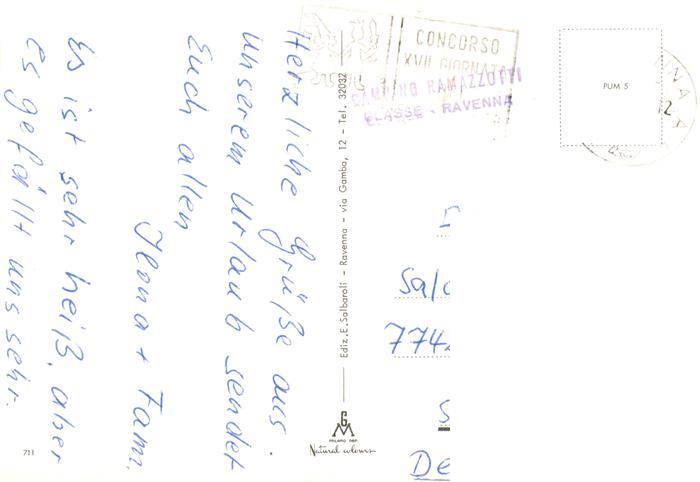 Herzliche Grüße aus
unserem Urlaub sendet
Euch allen
Ilona + Fam.
Es ist sehr heiß, aber
es gefällt uns sehr.
711
Ediz. E. Salbaroli - Ravenna - via Gamba, 12 - Tel. 32032
MILANO
Natural colours
CONCORSO
XVII GIORNATA
CAMPING RAMAZZOTTI
CLASSE - RAVENNA
PUM 5